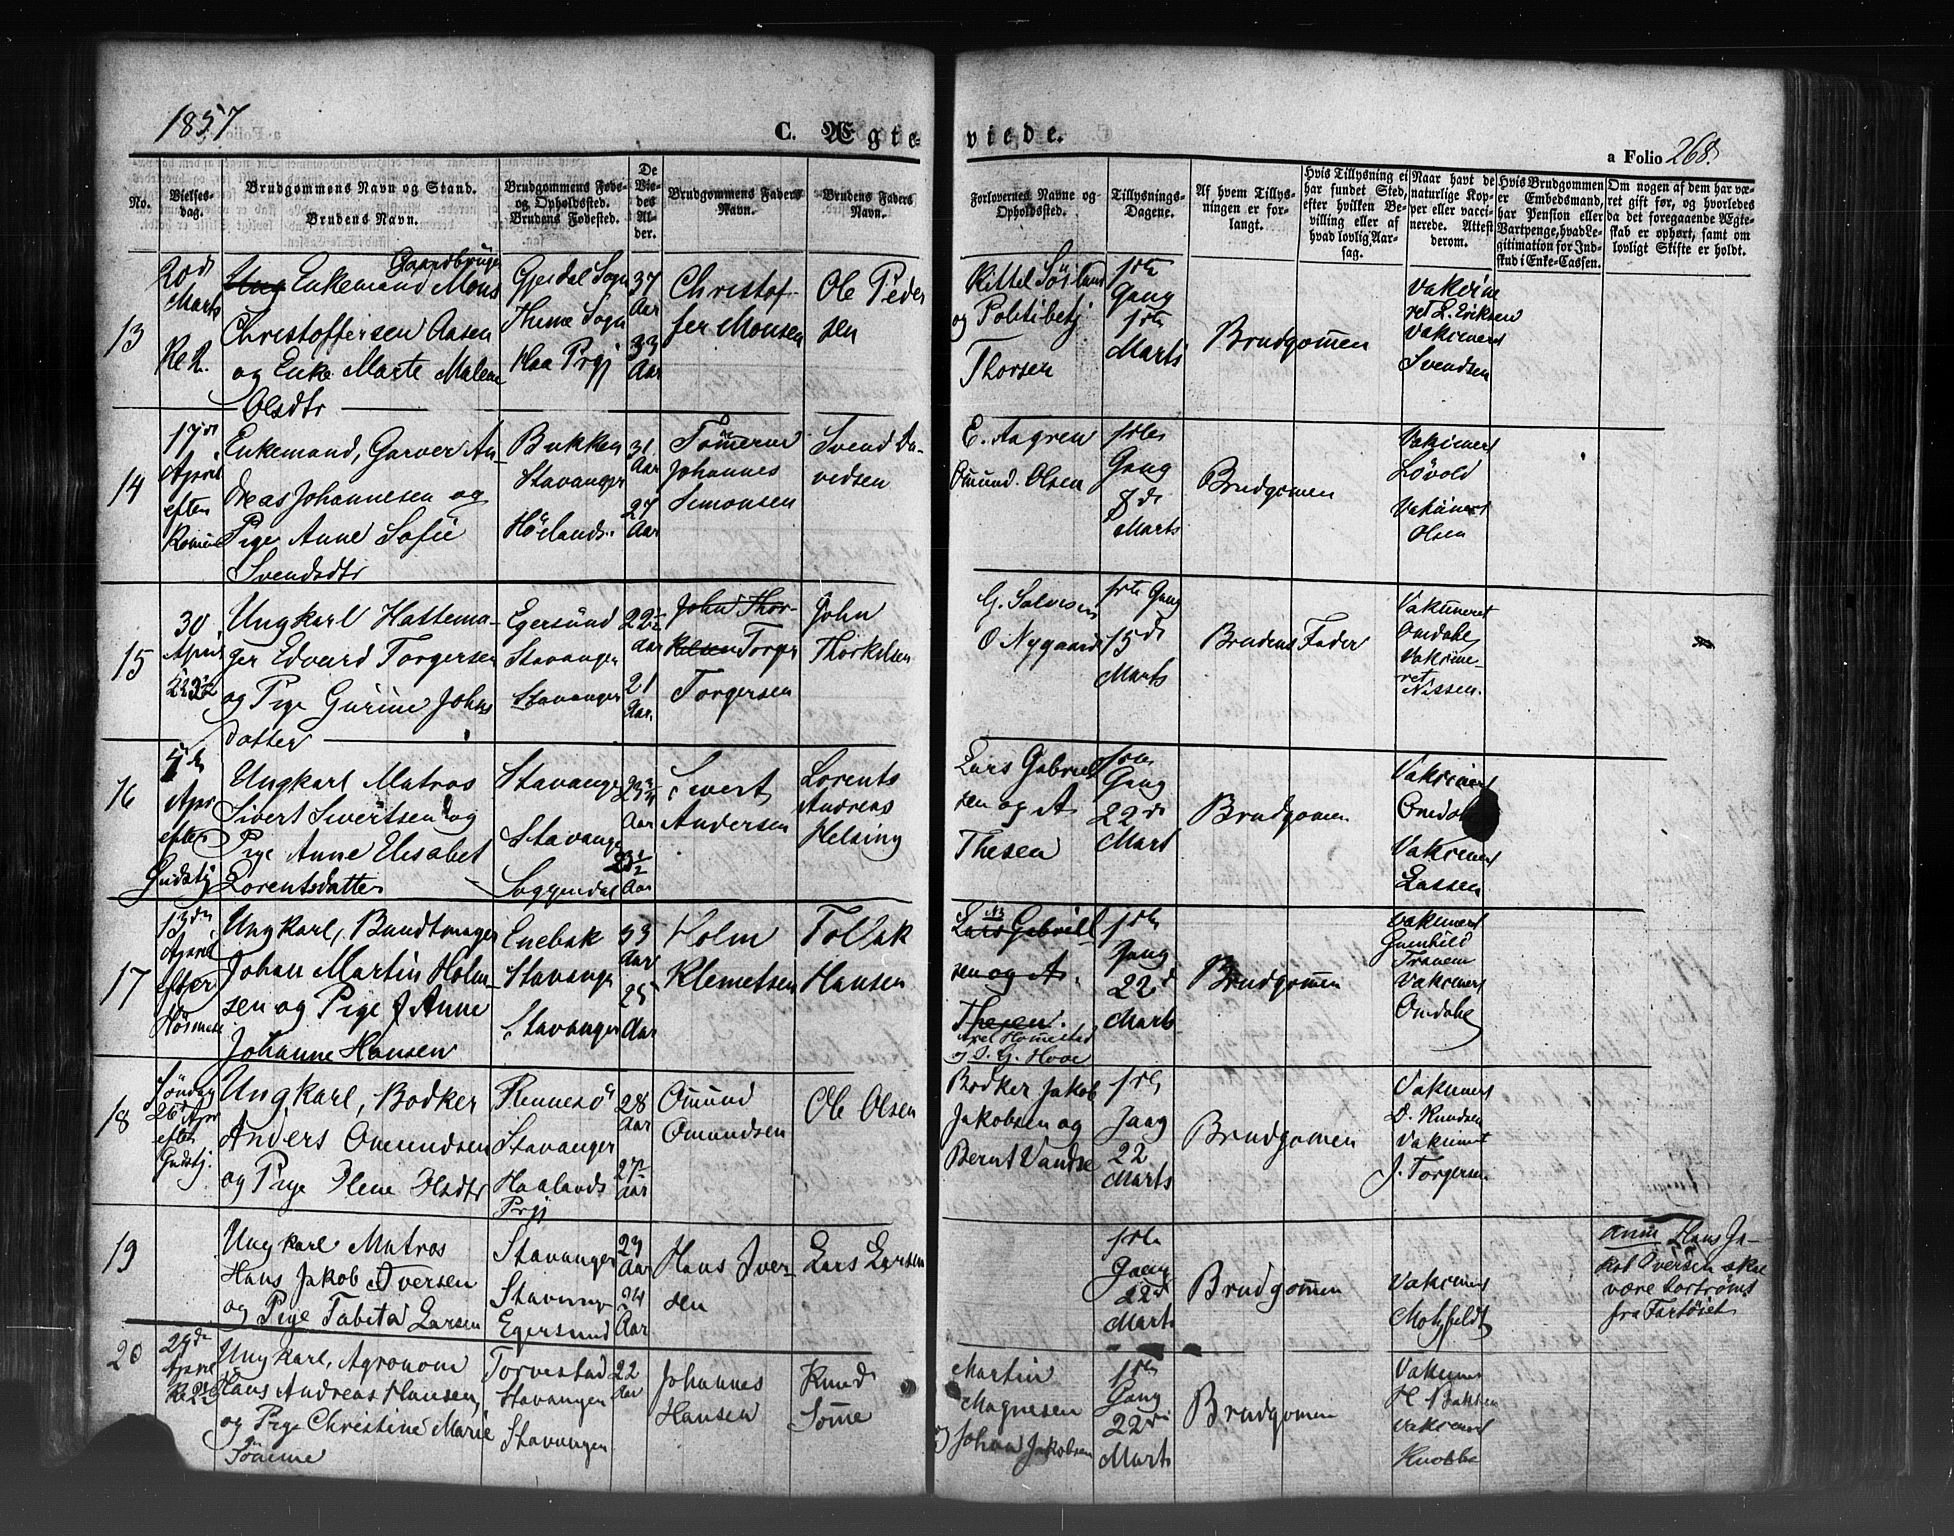 1857
C. Ægteviede.
a Folio 268.
No.
Vielsesdag.
Brudgommens Navn og Stand.
Brudens Navn.
Brudgommens Fødе- og Opholdssted.
Brudens Fødested.
De Viedes Alder.
Brudgommens Faders Navn.
Brudens Faders Navn.
Forlovernes Navne og Opholdssted.
Tillysnings-Dagene.
Af hvem Tillysningen er forlangt.
Hvis Tillysning ei har fundet Sted, efter hvilken Bevilling eller af hvad lovlig Aarsag.
Naar havt de naturlige Kopper eller vaccinerede. Attest derom.
Hvis Brudgommen er Embedsmand, har Pension eller Vartpenge, hvad Legitimation for Indskud i Enke-Cassen.
Om nogen af dem har været gift før, og hvorledes da det foregaaende Ægteskab er ophørt, samt om lovligt Skifte er holdt.
13
20de
Marts
Gaardbruger
Ung Enkemand Mons
Christoffersen Aasen
og Enke Marte Malene
Olsdtr
Gjesdal Sogn
Haa Prgj
37
Aar
33
Aar
Christof-
fer Monsen
Ole Peder
sen
og Politibetj
Thorsen
1ste
Gang
1ste
Marts
Brudgommen
Vakcine
ret L. Eriksen
Vakcineret
Svendsen
14
17de
April
efter
Enkemand, Garver An-
dreas Johannesen og
Pige Anne Sofie
Svendsdtr
Bukken
Stavanger
Høelands
31
Aar
27
Aar
Johannes
Simonsen
Svend Da-
vedsen
E. Aagren
Omund Olsen
1ste
Gang
8de
Marts
Brudgomen
Vakcineret
Løvold
Vakcineret
Olsen
15
30
April
Ungkarl Hattema-
ger Edvard Torgersen
og Pige Gurine Johns
datter
Egersund
Stavanger
Stavanger
22
aar
21
Aar.
John Thor-
kelsen Torger
Torgersen
John
Thorkelsen
G. Salvesen
O Nygaard
1ste Gang
15de
Marts
Brudens Fader
Vakcineret
Omdahl
Vakcine-
ret
Nissen.
16
April
efter
Gudstj
Ungkarl Matros
Sivert Sivertsen og
Pige Anne Elisabet
Lorentsdatter
Stavanger
Stavanger
Soggendal
Aar
Aar
Sivert
Andersen
Lorents
Andreas
Helsing
Lars Gabriel
sen og A
Thesen
1ste
Gang
22de
Marts
Brudgomen
Vakcineret
Omdahl
Vakcineret
Lassen
17
13de
April
efter
Ungkarl, Bundtmager
Johan Martin Holm-
sen og Pige J Anne
Johanne Hansen
Enebak
Stavanger
Stavanger
33
Aar
25
Aar
Holm
Klemetsen
Tollak
Hansen
Lars Gabriel
sen og A.
Thesen.
Axel Hommestad
og S. G. Hove
1ste
Gang
22d
Marts
Brudgommen
Vakcineret
Gunhild
Tranem
Vakcineret
Omdahl
18
Søndag
26de Apr
efter
Gudstj.
Ungkarl, Bødker
Anders Omundsen
og Pige Elene Olsdtr
Rennesø
Stavanger
Haalands
Prgj
28
Aar
27
aar
Omund
Omundsen
Ole Olsen
Bødker Jakob
Jakobsen og
Bernt Vandse
1ste
Gang
22
Marts
Brudgomen
Vakcineret
D. Knudsen
Vakcineret
J. Torgersen
19
Ungkarl Matros
Hans Jakob Iversen
og Pige Tabita Larsen
Stavanger
Stavanger
Egersund
29
Aar
24
Aar
Hans Iver-
sen
Lars Larsen
1ste
Gang
22de
Marts
Brudgommen
Vakcineret
Motzfeldt
Anm Hans Ja-
kob Iversen skal
være bortrømt
fra Fartøiet
20
29de
April
Ungkarl, Agronom
Hans Andreas Hansen
og Pige Christine Marie
Sømme
Torvestad
Stavanger
Stavanger
22
Aar
Johannes
Hansen
Knud
Sømme
Martin
Magnesen
Johan Jakobsen
1ste
Gang
22de
Marts
Brudgomen
Vakcineret
H Bakken
Vakcineret